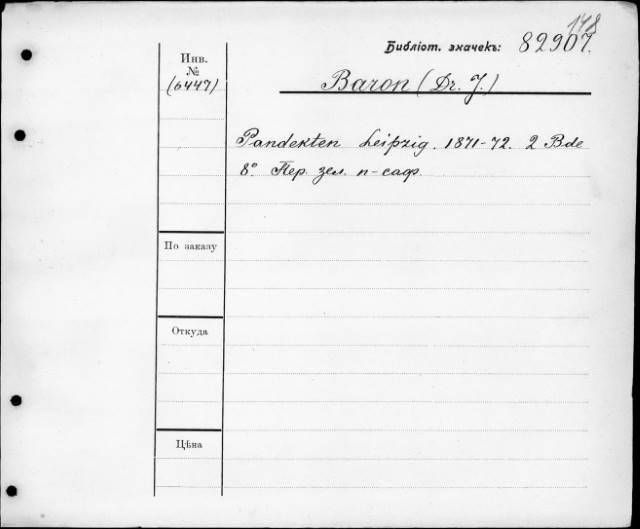 148
Библіот. значекъ: 82907.
Инв.
№
(6447)
Baron (Dr. J.)
Pandekten Leipzig. 1871-72. 2 Bde
8° Пер. зел. п-саф.
По заказу
Откуда
Цѣна